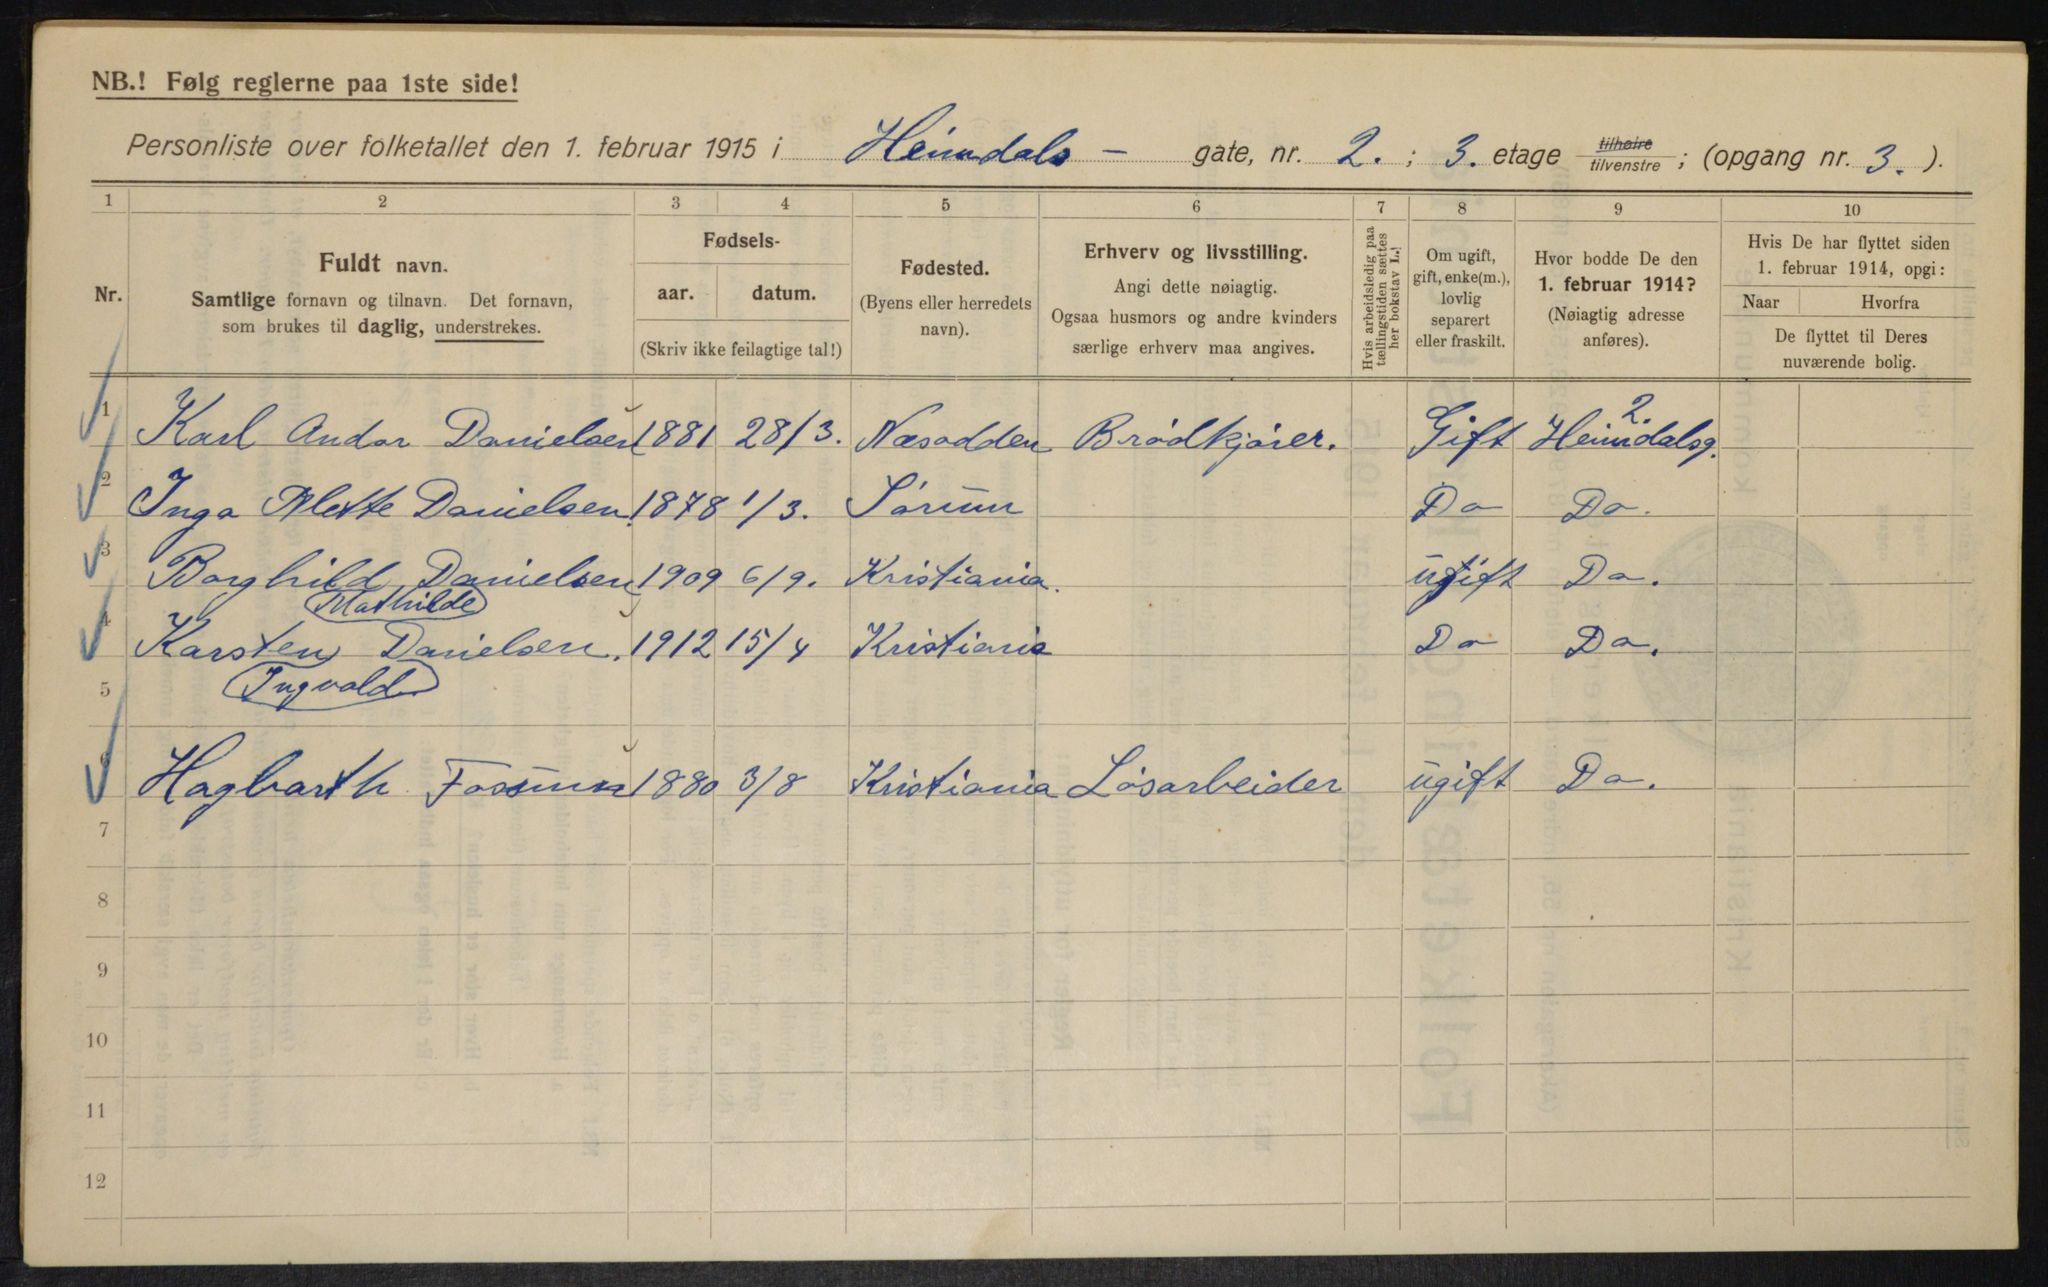 NB.! Følg reglerne paa 1ste side!
Personliste over folketallet den 1. februar 1915 i Heimdals - gate, nr. 2. ; 3. etage tilhøire / tilvenstre ; (opgang nr. 3. ).
1 2 3 4 5 6 7 8 9 10
Nr.
Fuldt navn.
Samtlige fornavn og tilnavn. Det fornavn,
som brukes til daglig, understrekes.
Fødsels-
aar. datum.
(Skriv ikke feilagtige tal!)
Fødested.
(Byens eller herredets
navn).
Erhverv og livsstilling.
Angi dette nøiagtig.
Ogsaa husmors og andre kvinders
særlige erhverv maa angives.
Hvis arbeidsledig paa
tællingstiden sættes
her bokstav L.!
Om ugift,
gift, enke(m.),
lovlig
separert
eller fraskilt.
Hvor bodde De den
1. februar 1914?
(Nøiagtig adresse
anføres).
Hvis De har flyttet siden
1. februar 1914, opgi:
Naar Hvorfra
De flyttet til Deres
nuværende bolig.
1 Karl Andor Danielsen 1881 28/3. Næsodden Brødkjører. Gift Heimdalsg. 2
2 Inga Alette Danielsen. 1878 1/3. Sørum Do Do.
3 Borghild Danielsen 1909 6/9. Kristiania. ugift Do.
Mathilde
4 Karsten Danielsen. 1912 15/4 Kristiania Do Do.
5 Ingvald
6 Hagbarth Fossum 1880 3/8 Kristiania Løsarbeider ugift Do.
7
8
9
10
11
12